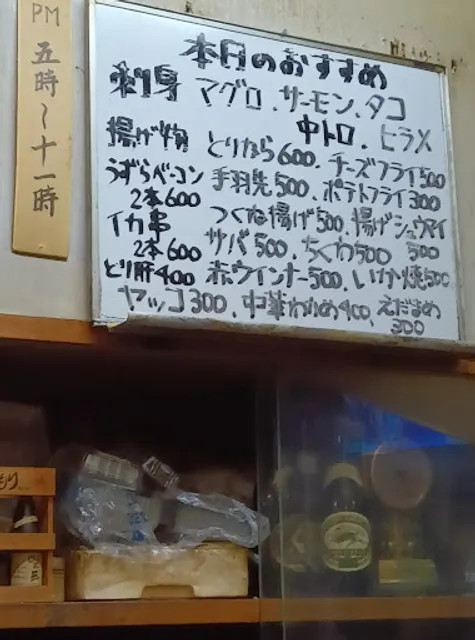 PM
五時~十一時
本日のおすすめ
刺身 マグロ、サーモン、タコ
中トロ、ヒラメ
揚げ物 とりから600、チーズフライ500
うずらベーコン 手羽先500、ポテトフライ300
2本600 つくね揚げ500、揚げシュウマイ
イカ串 サバ500、ちくわ500 500
2本600
とり肝400 赤ウインナー500、いか焼500
ヤッコ300、中華わかめ400、えだまめ
300